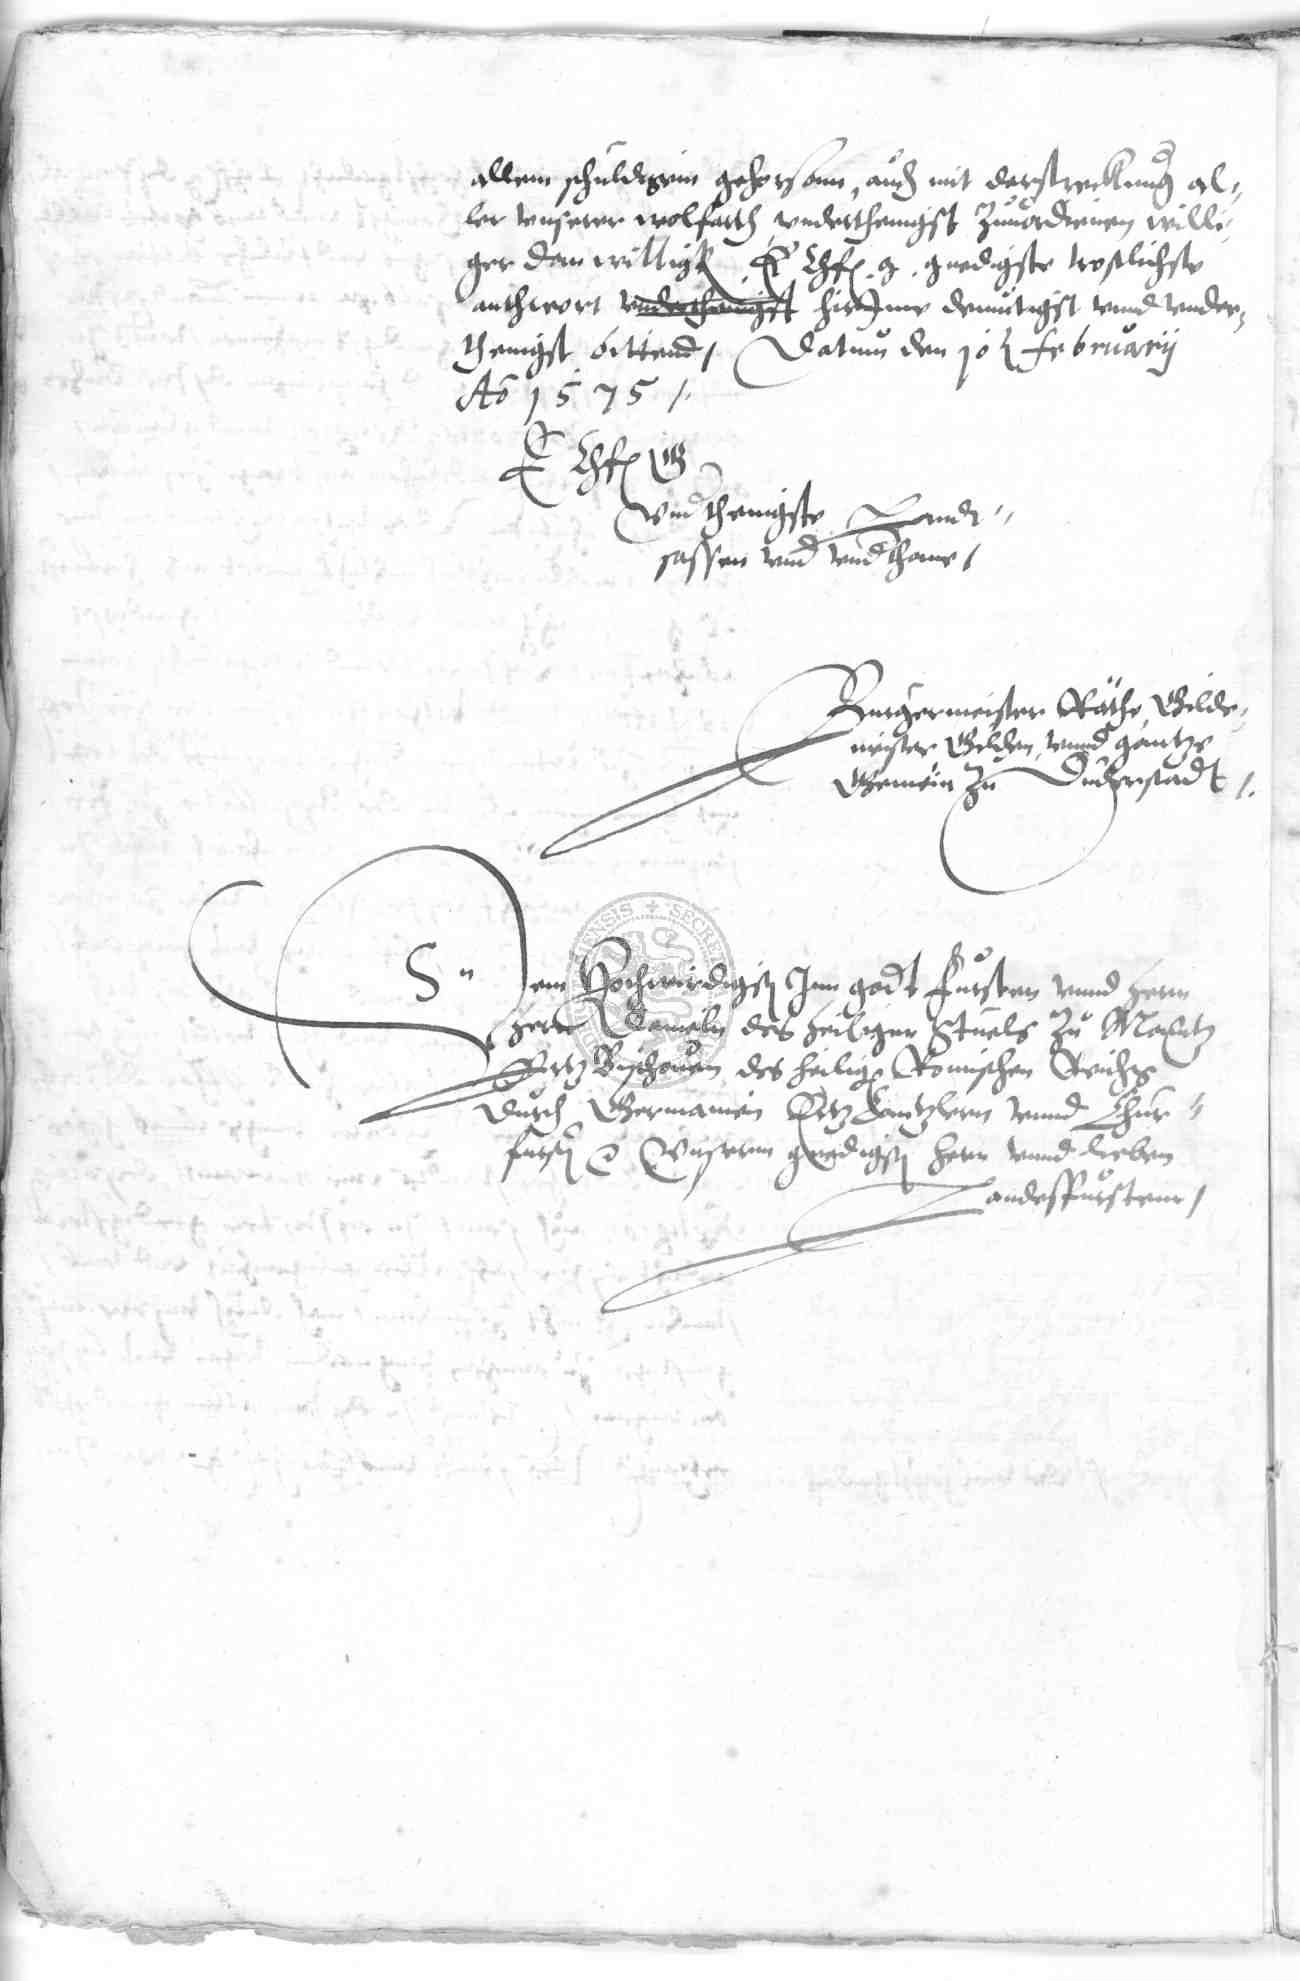 allem schuldigem gehorsam, auch mit darstreckung al„
ler vnserer wolfarth vnderthenigst zuuordienen willi„
ger dan willigk E Chf. g. gnedigste trostlichste
anthwort vnderthenigst hirJnne demutigst vnnd vnder„
thenigst bittend / Datum den 10 February
Ao 1575 /.
E Chf G
Vndthenigste Landt„
sassen vnd vndthane /
Burgermeister Räthe Gilde„
meister Gilden vnnd gantze
Gemein zu Duderstadt /.
Dem Hochwirdigst Jnn godt Fursten vnnd hern
hern Danieln des heiligen Stuels zu Maintz
Ertz Bischouen des heilig Romischen Reichs
durch Germanien Ertz Cantzlern vnnd Chur„
furst Vnserm gnedigst hern vnnd lieben
Landesfursten /
SECRE